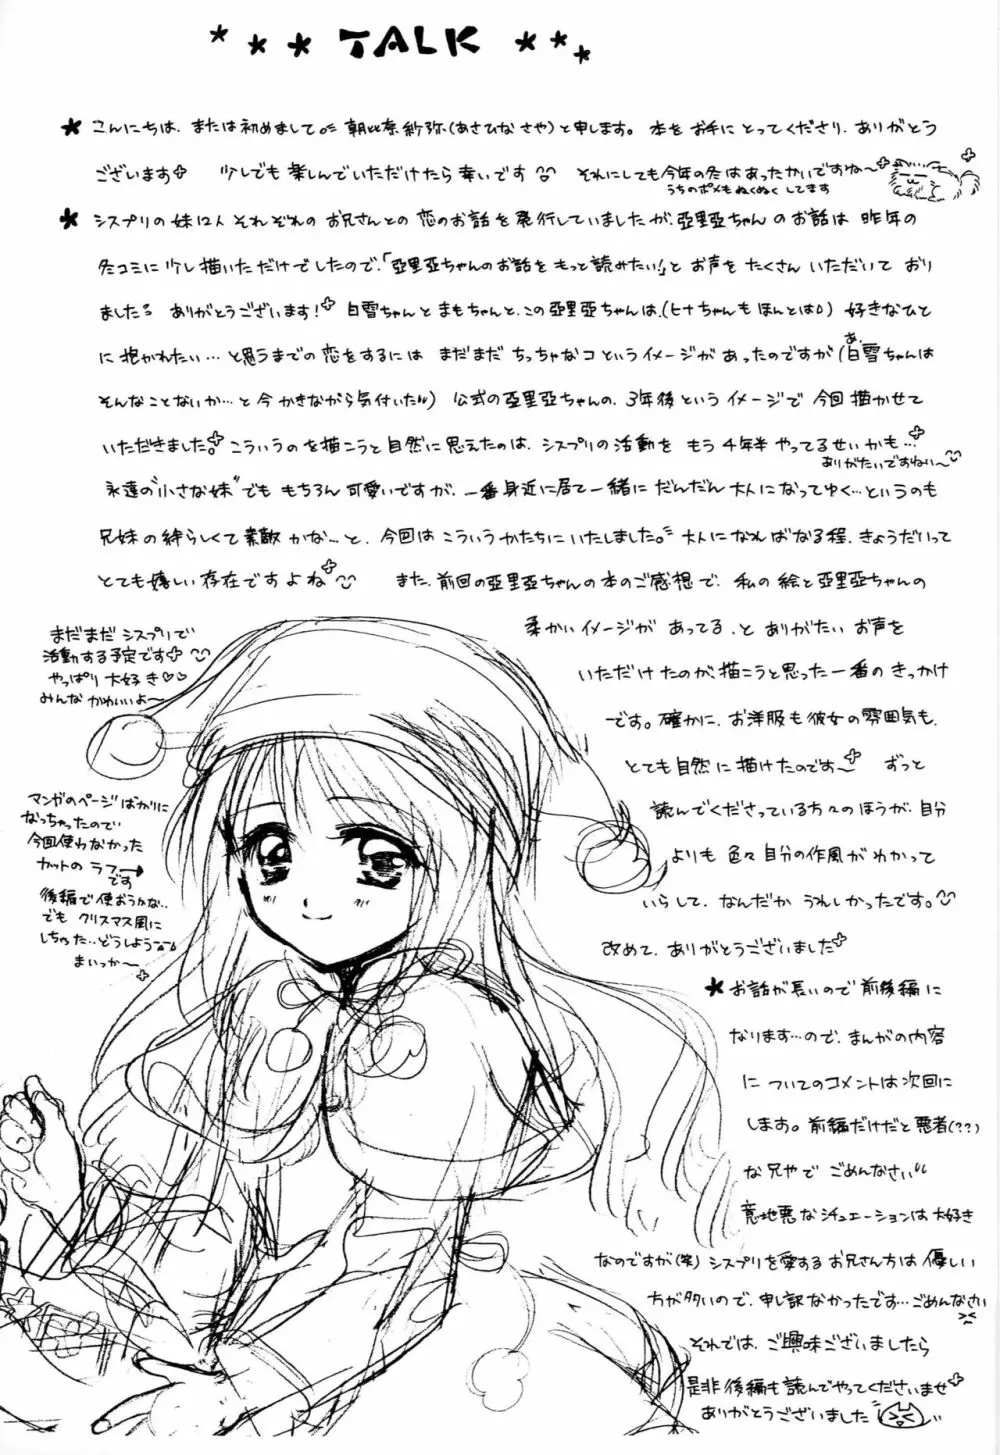 TALK
こんにちは、または初めまして 朝比奈紗弥(あさひなさや)と申します。本をお手にとってくださり、ありがとう
ございます 少しでも楽しんでいただけたら幸いです それにしても今年の冬はあったかいですね〜
うちのポメもぬくぬくしてます
シスプリの妹12人それぞれのお兄さんとの恋のお話を発行していましたが、亞里亞ちゃんのお話は昨年の
冬コミに少し描いただけでしたので、「亞里亞ちゃんのお話をもっと読みたい!」とお声をたくさんいただいており
ました ありがとうございます! 白雪ちゃんとまもちゃんと、この亞里亞ちゃんは、(ヒナちゃんもほんとは) 好きなひと
に抱かれたい…と思うまでの恋をするにはまだまだちっちゃなコというイメージがあったのですが(あ、白雪ちゃんは
そんなことないか…と今かきながら気付いた) 公式の亞里亞ちゃんの、3年後というイメージで今回描かせて
いただきました。こういうのを描こうと自然に思えたのは、シスプリの活動をもう4年半やってるせいかも…
ありがたいですねい〜
永遠の"小さな妹"でももちろん可愛いですが、一番身近に居て一緒にだんだん大人になってゆく…というのも
兄妹の絆らしくて素敵かな…と、今回はこういうかたちにいたしました。大人になればなる程、きょうだいって
とても嬉しい存在ですよね また、前回の亞里亞ちゃんの本のご感想で、私の絵と亞里亞ちゃんの
柔かいイメージがあってる、とありがたいお声を
いただけたのが、描こうと思った一番のきっかけ
です。確かに、お洋服も彼女の雰囲気も、
とても自然に描けたのです〜 ずっと
読んでくださっている方々のほうが、自分
よりも色々自分の作風がわかって
いらして、なんだかうれしかったです。
改めて、ありがとうございました
まだまだシスプリで
活動する予定です
やっぱり大好き♡♡
みんなかわいいよ〜
マンガのページばかりに
なっちゃったので
今回使わなかった
カットのラフ→
です
後編で使おうかな..
でもクリスマス風に
しちゃった…どうしよう
まいっか〜
お話が長いので前後編に
なります…ので、まんがの内容
についてのコメントは次回に
します。前編だけだと悪者(??)
な兄やでごめんなさい
意地悪なシチュエーションは大好き
なのですが(笑) シスプリを愛するお兄さん方は優しい
方が多いので、申し訳なかったです…ごめんなさい
それでは、ご興味ございましたら
是非後編も読んでやってくださいませ
ありがとうございました